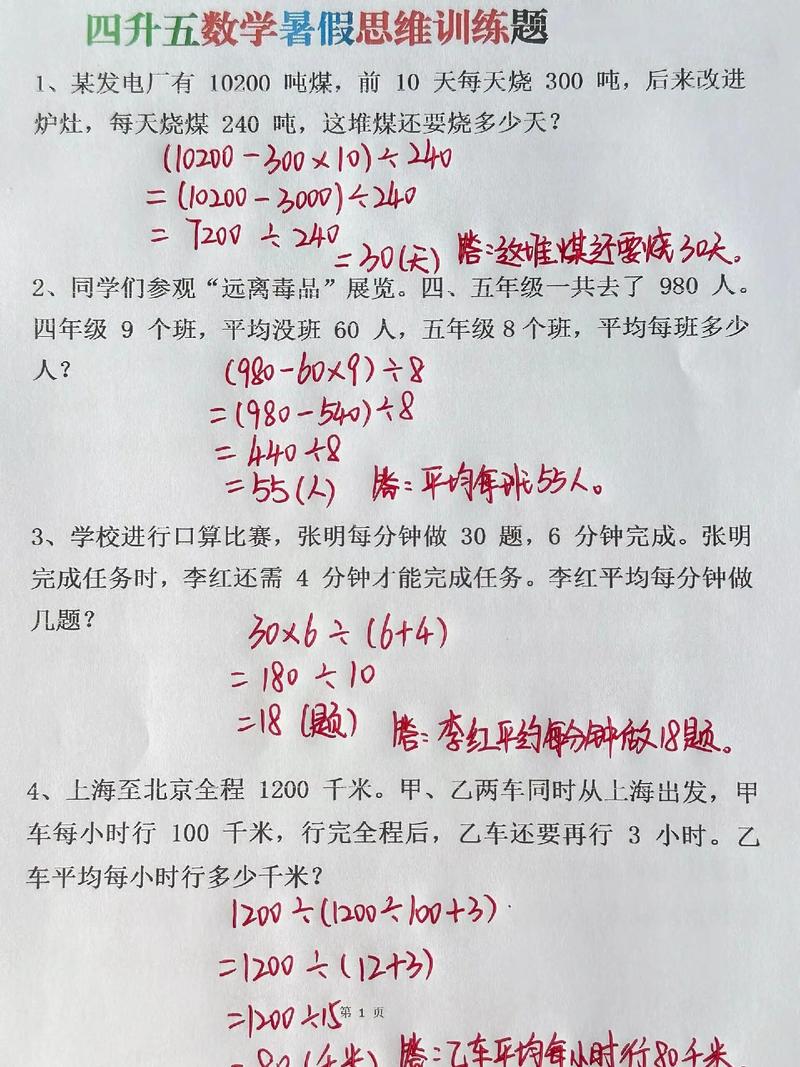 四升五数学暑假思维训练题
1、某发电厂有 10200 吨煤，前 10 天每天烧 300 吨，后来改进
炉灶，每天烧煤 240 吨，这堆煤还要烧多少天？
(10200-300×10)÷240
=(10200-3000)÷240
=7200÷240
=30(天) 答：这堆煤还要烧30天。
2、同学们参观“远离毒品”展览。四、五年级一共去了 980 人。
四年级 9 个班，平均没班 60 人，五年级8个班，平均每班多少
人？
(980-60×9)÷8
=(980-540)÷8
=440÷8
=55(人) 答：平均每班55人。
3、学校进行口算比赛，张明每分钟做 30 题，6 分钟完成。张明
完成任务时，李红还需 4 分钟才能完成任务。李红平均每分钟做
几题？
30×6÷(6+4)
=180÷10
=18(题) 答：李红平均每分钟做18题。
4、上海至北京全程 1200 千米。甲、乙两车同时从上海出发，甲
车每小时行 100 千米，行完全程后，乙车还要再行 3 小时。乙
车平均每小时行多少千米？
1200÷(1200÷100+3)
=1200÷(12+3)
=1200÷15
第 1 页
=80(千米) 答：乙车平均每小时行80千米